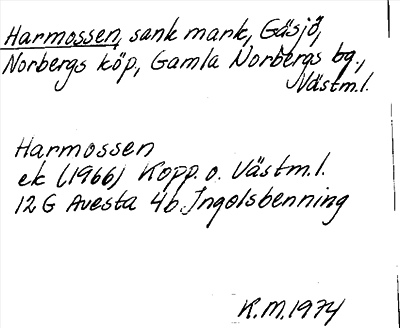 Harmossen, sank mark, Gäsjö,
Norbergs köp, Gamla Norbergs bg.,
Västm.l.
Harmossen
ek (1966) Kopp. o. Västm.l.
12G Avesta 4b Ingolsbenning
K.M. 1974